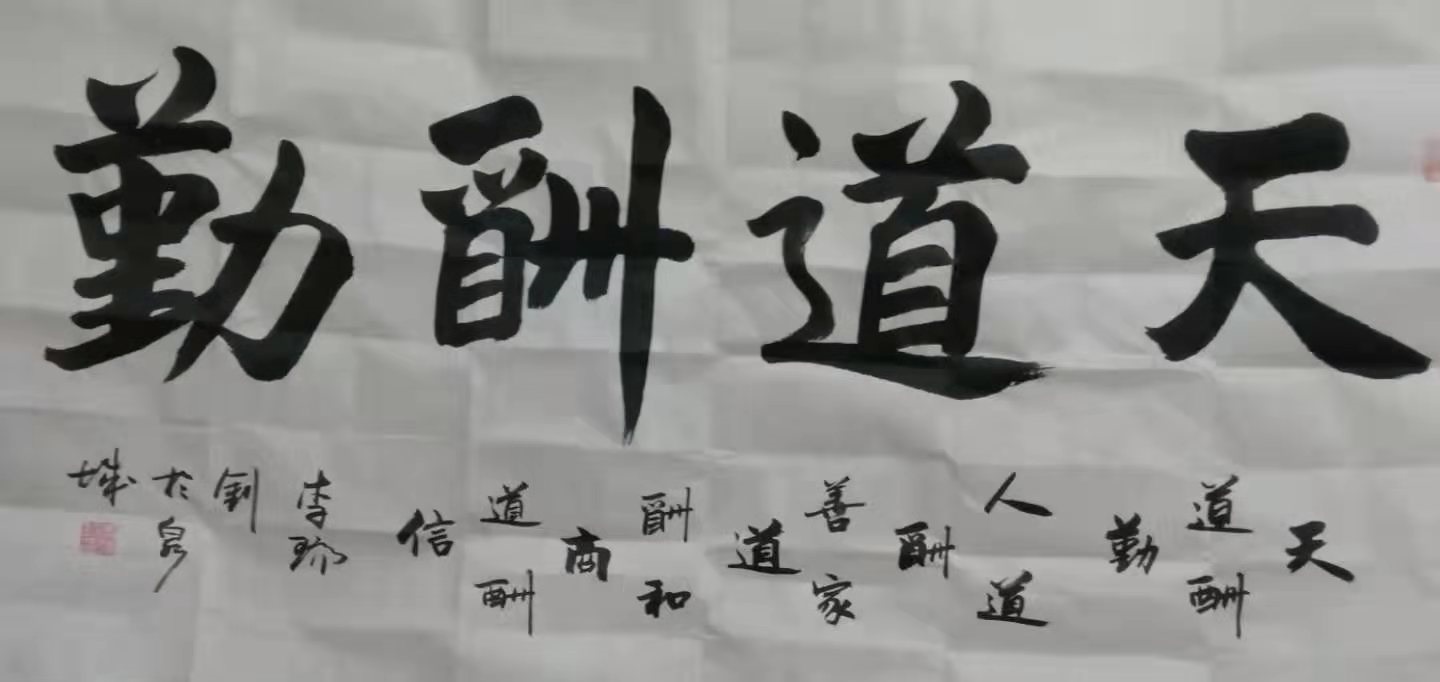 天道酬勤
天道酬勤人道酬善家道酬和商道酬信
李琢钊於泉城